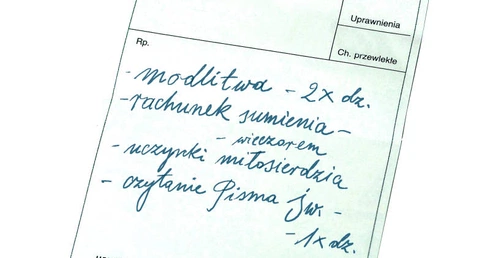 Uprawnienia
Ch. przewlekłe
Rp.
- modlitwa - 2x dz.
- rachunek sumienia -
- wieczorem
- uczynki miłosierdzia
- czytanie Pisma Św. -
- 1x dz.